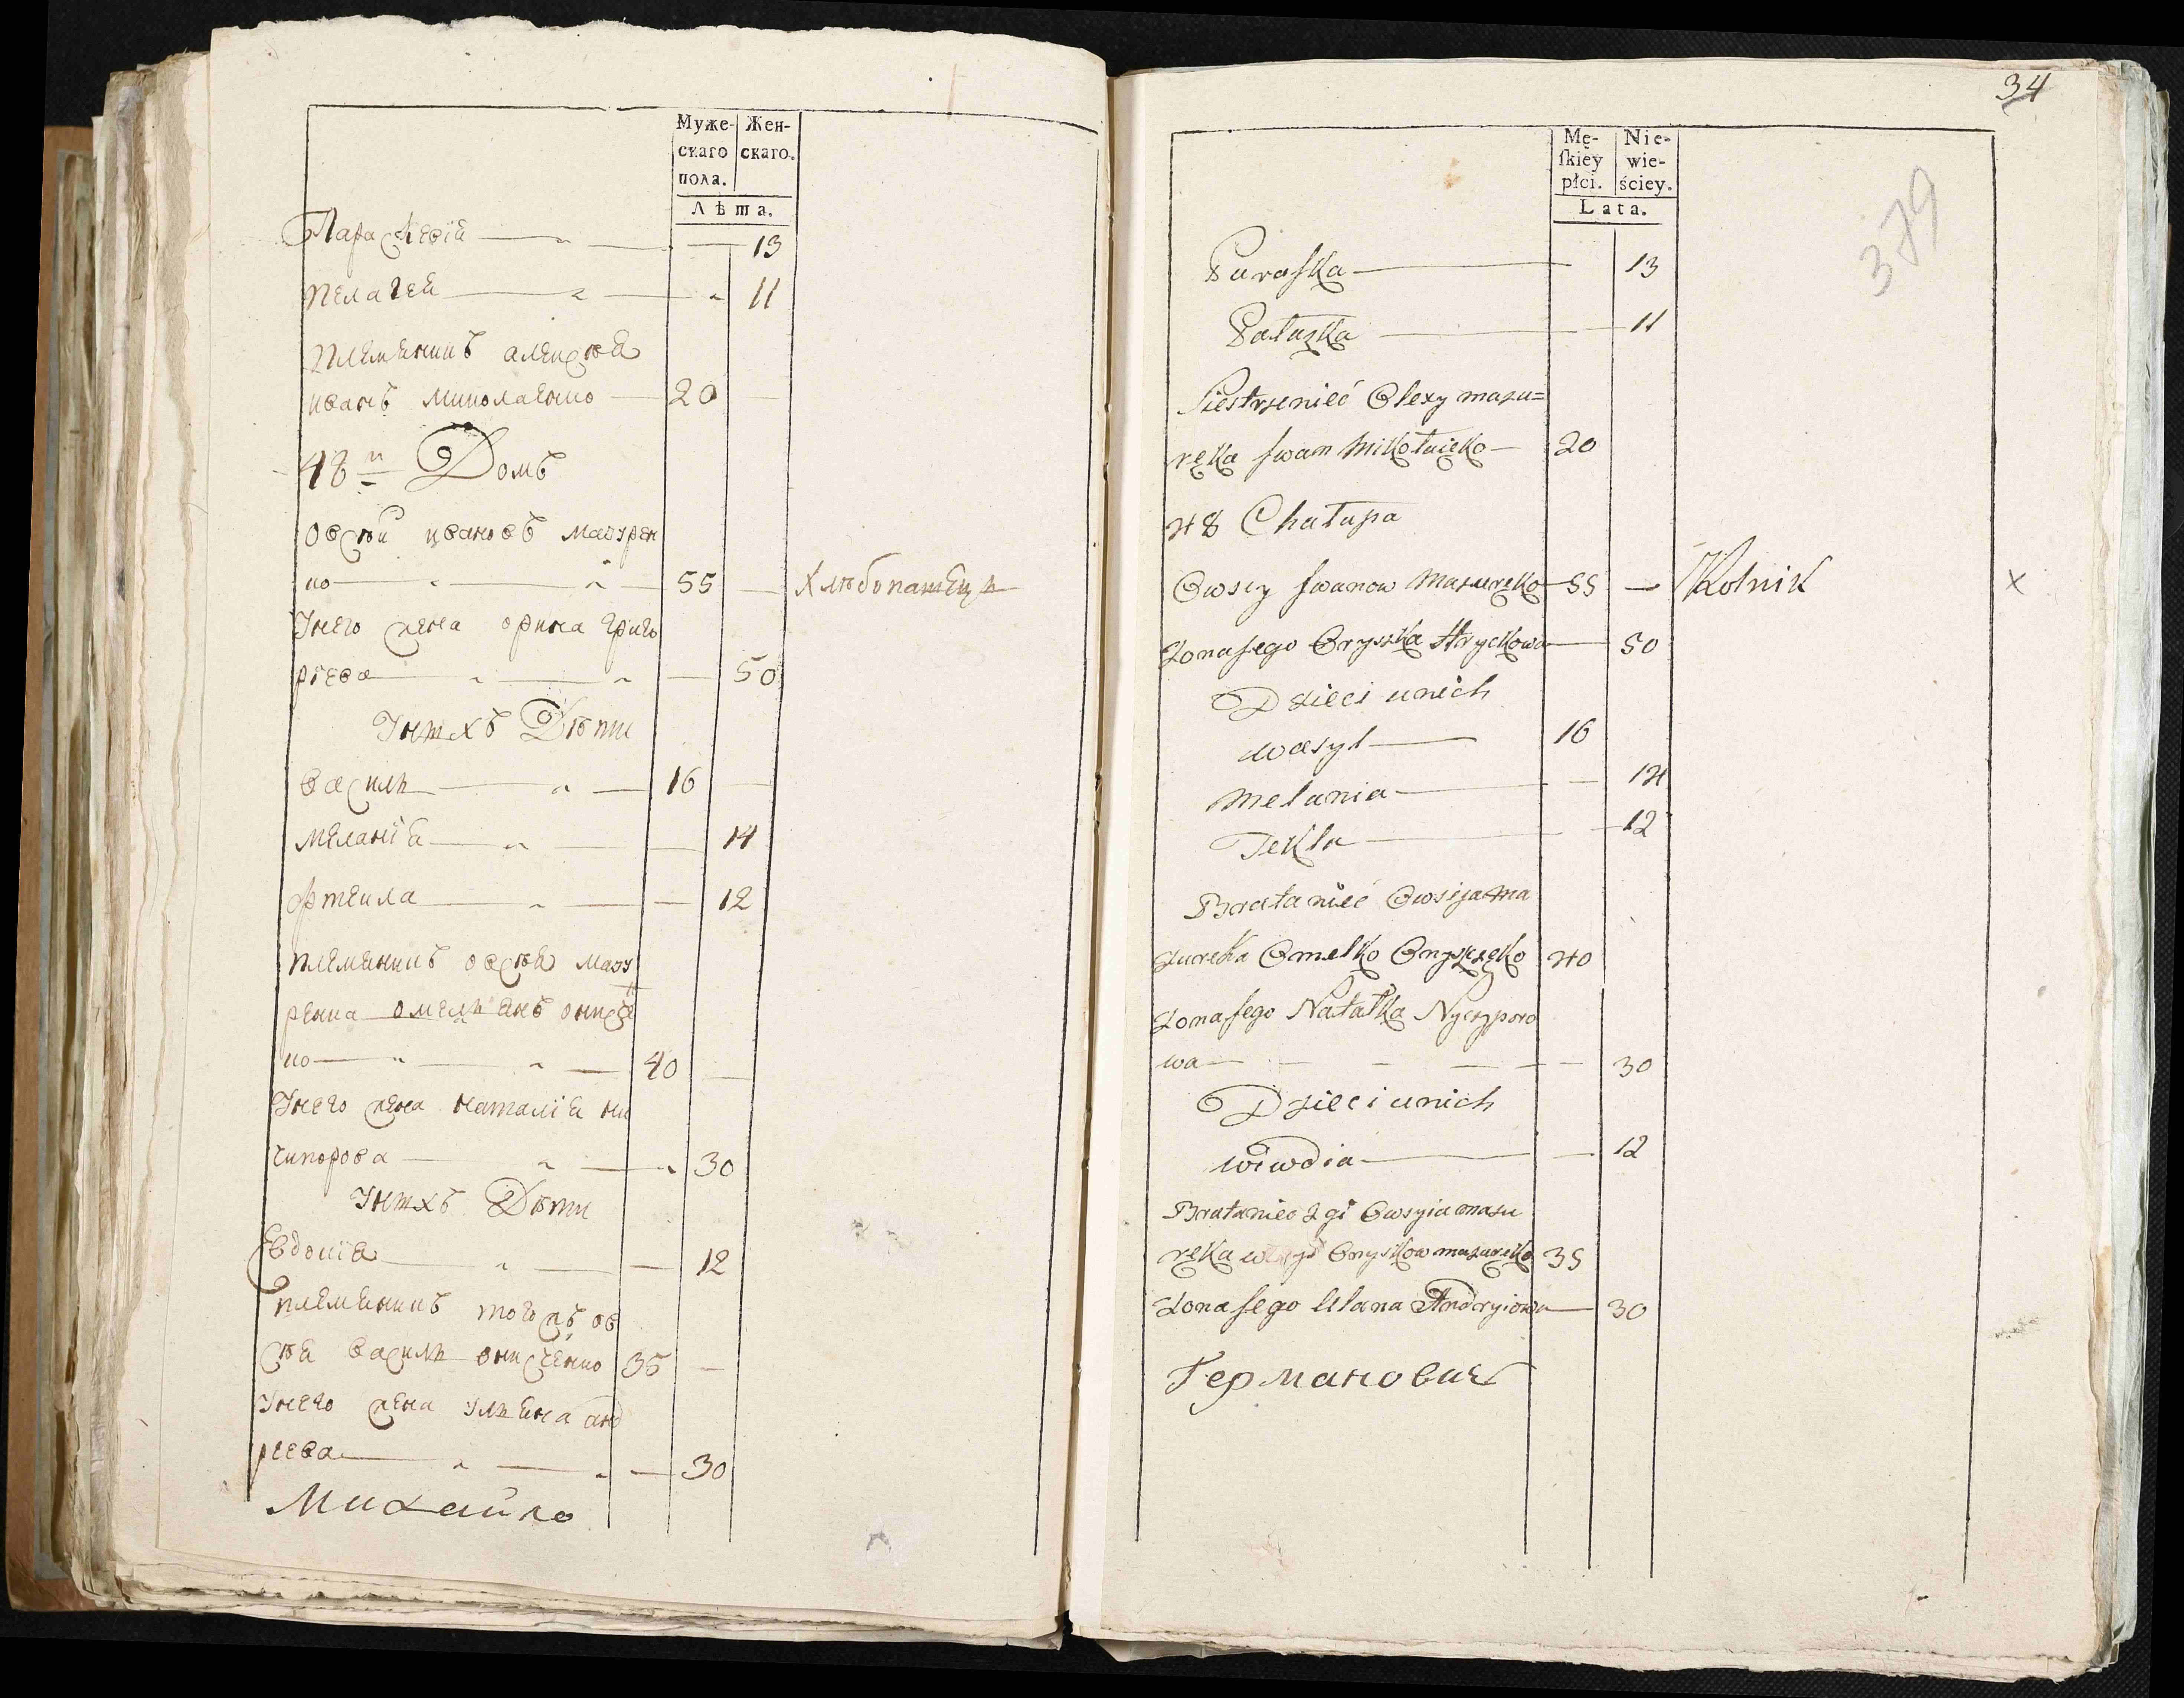 Муже-
скаго
пола.
Жен-
скаго.
Лѣта.
Параскевiи 13
пелагеи 11
племеникъ алексѣя
иванъ миколаенко 20
48й Домъ
овсѣй ивановъ мазурен
ко 55 хлѣбопашецъ
Унего жена орина григо
риева 50
Унихъ Дѣти
василь 16
меланiя 14
фтекла 12
племеникъ овсѣя мазу
ренка омельянъ
ко 40
Унего жена наталiя ни
чипорова 30
Унихъ Дѣти
Евдокiя 12
племеникъ тогожъ ов
сѣя василь онисченко 35
Унего жена ульяна анд
реева 30
Михайло
34
379
Mę-
ſkiey
płci.
Nie-
wie-
ściey.
Lata.
Paraſka 13
Pałazka 11
Siestrzenieć Olexy mazu=
ręka Jwan Mikołaięko 20
48 Chałupa
Owsey Jwanow Mazuręko 55 Rolnik x
Zona Jego Oryszka Hryckowa 50
Dzieci unich
wasyl 16
Melania 14
Tekla 12
Brataniec Owsija Ma
zuręka Omelko Onyszczęko 40
Zona Jego Natałka Nyczyporo
wa 30
Dzieci unich
wiwdia 12
Brataniec 2gi Owsyia mazu
ręka Onyśkow mazuręko 35
Zona Jego Ulana Andryiowa 30
Германович